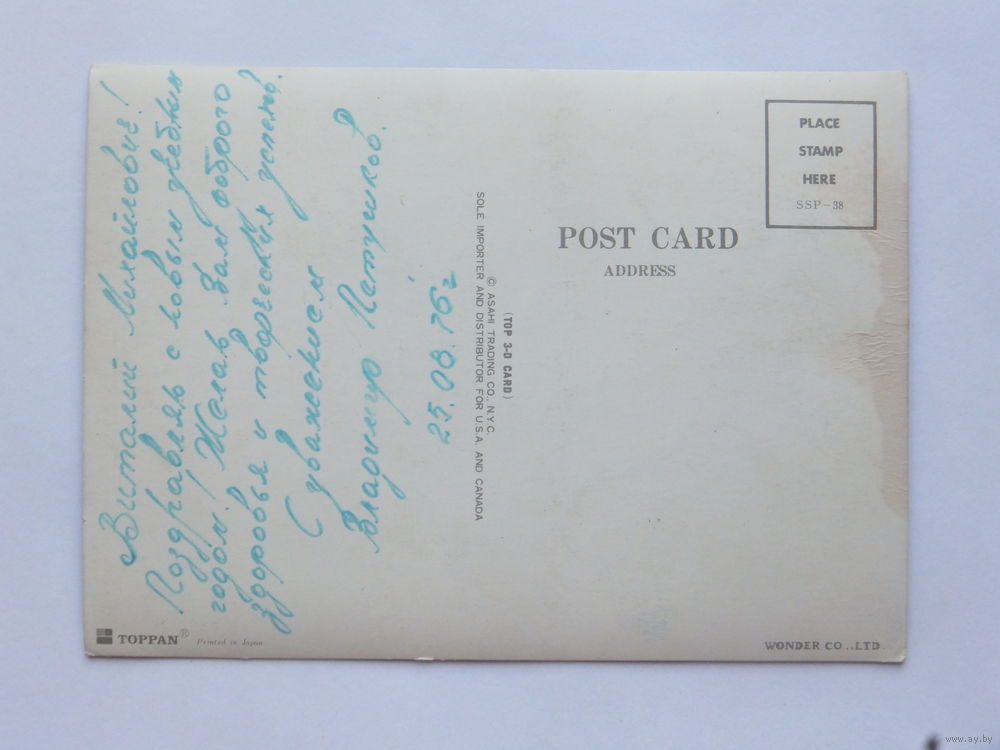 Виталий Михайлович!
Поздравляю с новым учебным
годом! Желаю Вам доброго
здоровья и творческих успехов.
С уважением
Владимир Петушков.
25.08.76г
TOPPAN®
Printed in Japan
© ASAHI TRADING CO., N.Y.C.
SOLE IMPORTER AND DISTRIBUTOR FOR U.S.A. AND CANADA
(TOP 3-D CARD)
POST CARD
ADDRESS
PLACE
STAMP
HERE
SSP-38
WONDER CO.,LTD.
www.ay.by